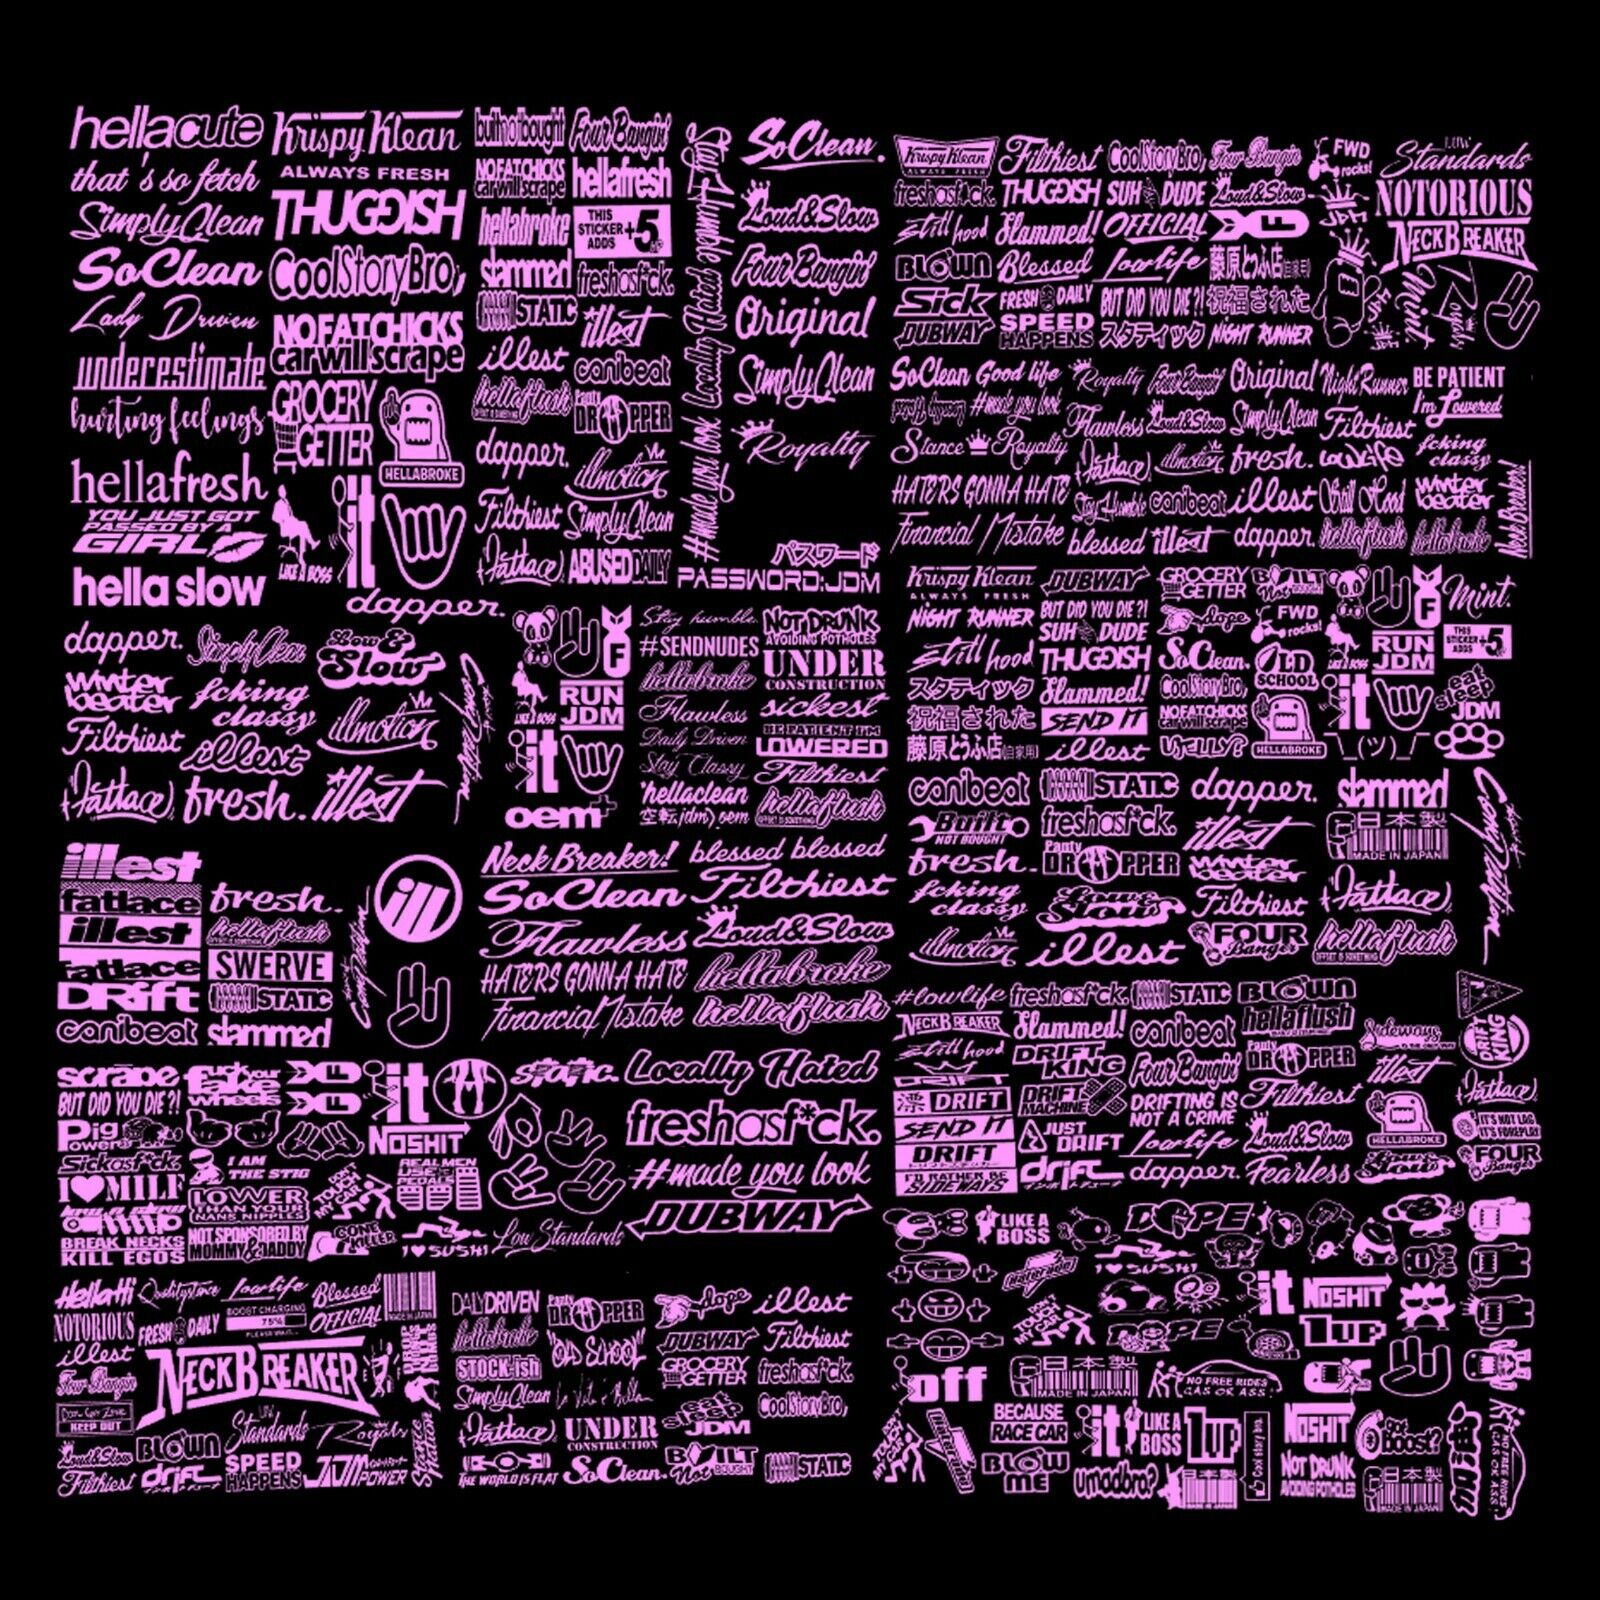 hellacute
that's so fetch
SimplyClean
SoClean
Lady Driven
underestimate
hurting feelings
hellafresh
YOU JUST GOT
PASSED BY A
GIRL
hella slow
Krispy Klean
ALWAYS FRESH
THUGGISH
CoolStoryBro,
NO FAT CHICKS
car will scrape
GROCERY
GETTER
HELLABROKE
LIKE A BOSS
it
dapper.
builtnotbought
NO FAT CHICKS
car will scrape
hellabroke
slammed
STATIC
illest
hellaflush
dapper.
Filthiest
(Fatlace)
Four Bangin'
hellafresh
THIS
STICKER
ADDS +5
freshasf*ck.
illest
canibeat
Panty
DROPPER
illmotion
SimplyClean
ABUSEDDAILY
Stay Humble
Locally Hated
#made you look
SoClean.
Loud&Slow
Four Bangin'
Original
SimplyClean
Royalty
パスワード
PASSWORD:JDM
Krispy Klean
ALWAYS FRESH
Filthiest
CoolStoryBro,
Four Bangin
FWD
rocks!
Low
Standards
freshasf*ck.
THUGGISH
SUH DUDE
Loud&Slow
NOTORIOUS
still hood
Slammed!
OFFICIAL
NECKBREAKER
BLOWN
Blessed
lowlife
藤原とうふ店(自家用)
Sick
FRESH DAILY
BUT DID YOU DIE?!
祝福された
DUBWAY
SPEED
HAPPENS
スタティック
NIGHT RUNNER
Mint.
Royalty
SoClean
Good life
Royalty
Four Bangin'
Original
Night Runner
BE PATIENT
I'm Lowered
#made you look
Flawless
Loud&Slow
SimplyClean
Filthiest
Stance
Royalty
(Fatlace)
illmotion
fresh.
LowLife
fcking
classy
HATERS GONNA HATE
Stay Humble
canibeat
illest
Still Hood
winter
beater
Financial Mistake
blessed
illest
dapper.
hellaflush
hellabroke
Neck Breaker!
dapper.
SimplyClean
Low &
Slow
winter
beater
fcking
classy
illmotion
Filthiest
illest
(Fatlace)
fresh.
illest
RUN
JDM
LIKE A BOSS
it
oem+
Stay humble.
#SENDNUDES
hellabroke
Flawless
Daily Driven
Stay Classy
*hellaclean
空転(jdm) oem
NOT DRUNK
AVOIDING POTHOLES
UNDER
CONSTRUCTION
sickest
BE PATIENT I'M
LOWERED
Filthiest
hellaflush
Krispy Klean
ALWAYS FRESH
DUBWAY
GROCERY
GETTER
BUILT
Not BOUGHT
Mint.
NIGHT RUNNER
BUT DID YOU DIE?!
dope
FWD
rocks!
RUN
JDM
THIS
STICKER
ADDS +5
still hood
SUH DUDE
THUGGISH
SoClean.
OLD
SCHOOL
スタティック
Slammed!
CoolStoryBro,
it
eat
sleep
JDM
祝福された
SEND IT
NO FAT CHICKS
car will scrape
HELLABROKE
藤原とうふ店(自家用)
illest
UJELLY?
¯\_(ツ)_/¯
canibeat
STATIC
dapper.
slammed
Built
NOT BOUGHT
freshasf*ck.
illest
日本製
MADE IN JAPAN
fresh.
Panty
DROPPER
winter
beater
(Fatlace)
fcking
classy
Low &
Slow
Filthiest
illmotion
illest
FOUR
Banger
hellaflush
illest
fatlace
illest
fatlace
DRift
canibeat
fresh.
hellaflush
SWERVE
STATIC
slammed
ill
Neck Breaker!
blessed blessed
SoClean
Filthiest
Flawless
Loud&Slow
HATERS GONNA HATE
hellabroke
Financial Mistake
hellaflush
#lowlife
freshasf*ck.
STATIC
BLOWN
NECKBREAKER
Slammed!
canibeat
hellaflush
Sideways
DRIFT
KING
still hood
DRIFT
KING
Four Bangin'
Panty
DROPPER
illest
DRIFT
DRIFT
MACHINE
DRIFTING IS
NOT A CRIME
Filthiest
(Fatlace)
SEND IT
JUST
DRIFT
lowlife
Loud&Slow
HELLABROKE
IT'S NOT LAG
IT'S FOREPLAY
DRIFT
I'D RATHER BE
SIDEWAYS
drift
dapper.
Fearless
FOUR
Banger
scrape
fuck your
fake
wheels
it
static.
BUT DID YOU DIE?!
Pig
Power
NOSHIT
Sickasf*ck.
I AM
THE STIG
REAL MEN
USE THREE
PEDALS
I MILF
LOWER
THAN YOUR
NANS NIPPLES
TOUCH
MY CAR
BREAK NECKS
KILL EGOS
NOT SPONSORED BY
MOMMY&DADDY
GONE
KILLER
I SUSHI
Low Standards
Locally Hated
freshasf*ck.
#made you look
DUBWAY
HellaHi
Qualitystance
lowlife
Blessed
MADE IN JAPAN
NOTORIOUS
FRESH DAILY
BOOST CHARGING
75%
PLEASE WAIT...
OFFICIAL
illest
NECKBREAKER
Four Bangin
KEEP OUT
Low
Standards
Royalty
Loud&Slow
BLOWN
Filthiest
drift
SPEED
HAPPENS
JDM
POWER
DAILYDRIVEN
Panty
DROPPER
dope
illest
hellabroke
OLD SCHOOL
DUBWAY
Filthiest
STOCK-ish
GROCERY
GETTER
freshasf*ck.
SimplyClean
eat
sleep
JDM
CoolStoryBro,
(Fatlace)
UNDER
CONSTRUCTION
THE WORLD IS FLAT
SoClean.
BUILT
Not BOUGHT
STATIC
LIKE A
BOSS
DOPE
I SUSHI
it
NOSHIT
TOUCH
MY CAR
DOPE
1UP
off
日本製
MADE IN JAPAN
NO FREE RIDES
GAS OR ASS!
BECAUSE
RACE CAR
it
LIKE A
BOSS
1UP
Cool story bro.
NOSHIT
Got
Boost?
TOUCH
MY CAR
BLOW
ME
umadbro?
NOT DRUNK
AVOIDING POTHOLES
日本製
MADE IN JAPAN
NO FREE RIDES
GAS OR ASS!